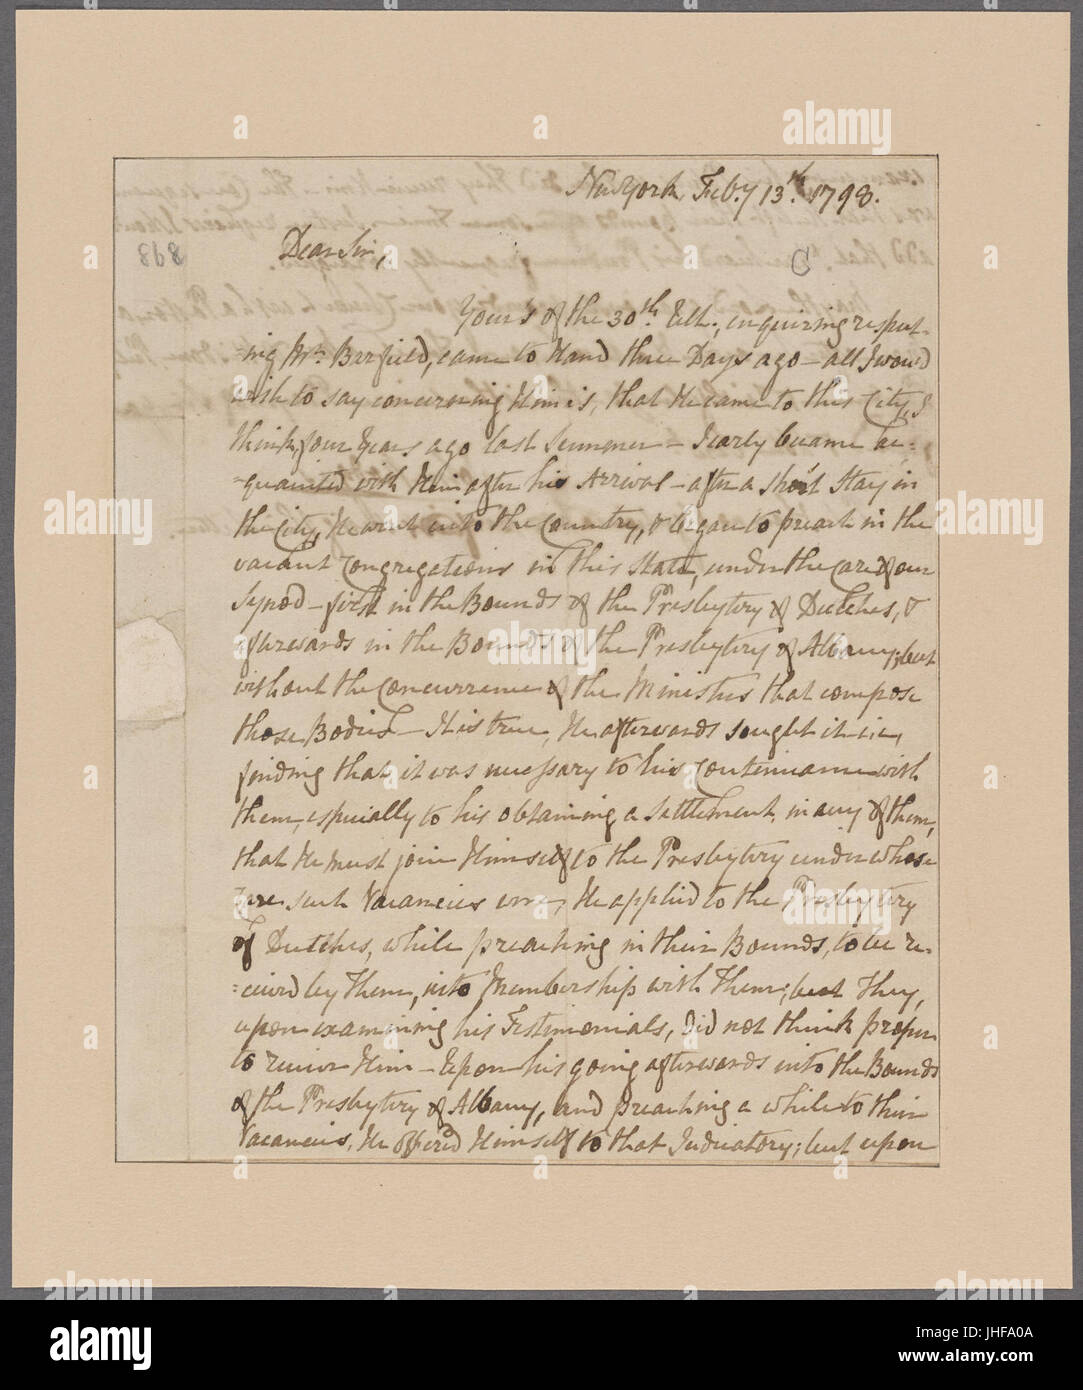 NewYork Feby 13.th 1798.
Dear Sir,
Yours of the 30th. Ult., enquiring respect-
-ing Mr. Barfield, came to Hand three Days ago – all I would
wish to say concerning Him is, that He came to this City, I
think, four Years ago last Summer – I early became ac-
-quainted with Him after his Arrival – after a short Stay in
the City, He went into the Country, & began to preach in the
vacant Congregations in this State, under the Care of our
Synod – first in the Bounds of the Presbytery of Dutches, &
afterwards in the Bounds of the Presbytery of Albany; but
without the Concurrence of the Ministers that compose
those Bodies – It is true, He afterwards sought it i.e.,
finding that it was necessary to his Continuance with
them, especially to his obtaining a Settlement, in any of them,
that He must join Himself to the Presbytery under whose
Care such Vacancies were, He applied to the Presbytery
of Dutches, while preaching in their Bounds, to be re-
-ceived by Them, into Membership with Them; but They,
upon examining his Testimonials, did not think proper
to receive Him – Upon his going afterwards into the Bounds
of the Presbytery of Albany, and preaching a while to their
Vacancies, He offered Himself to that Judicatory; but upon
893
C
a
alamy
alamy
Image ID: JHFA0A
www.alamy.com